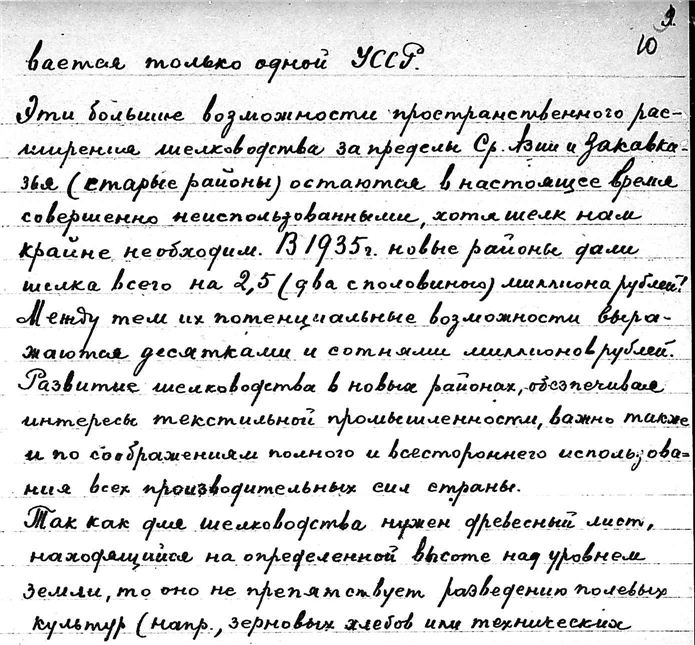 9.
10
вается только одной УССР.
Эти большие возможности пространственного рас-
ширения шелководства за пределы Ср. Азии и Закавка-
зья (старые районы) остаются в настоящее время
совершенно неиспользованными, хотя шелк нам
крайне необходим. В 1935 г. новые районы дали
шелка всего на 2,5 (два с половиною) миллиона рублей!
Между тем их потенциальные возможности выра-
жаются десятками и сотнями миллионов рублей.
Развитие шелководства в новых районах, обезпечивая
интересы текстильной промышленности, важно также
и по соображениям полного и всестороннего использова-
ния всех производительных сил страны.
Так как для шелководства нужен древесный лист,
находящийся на определенной высоте над уровнем
земли, то оно не препятствует разведению полевых
культур (напр., зерновых хлебов или технических